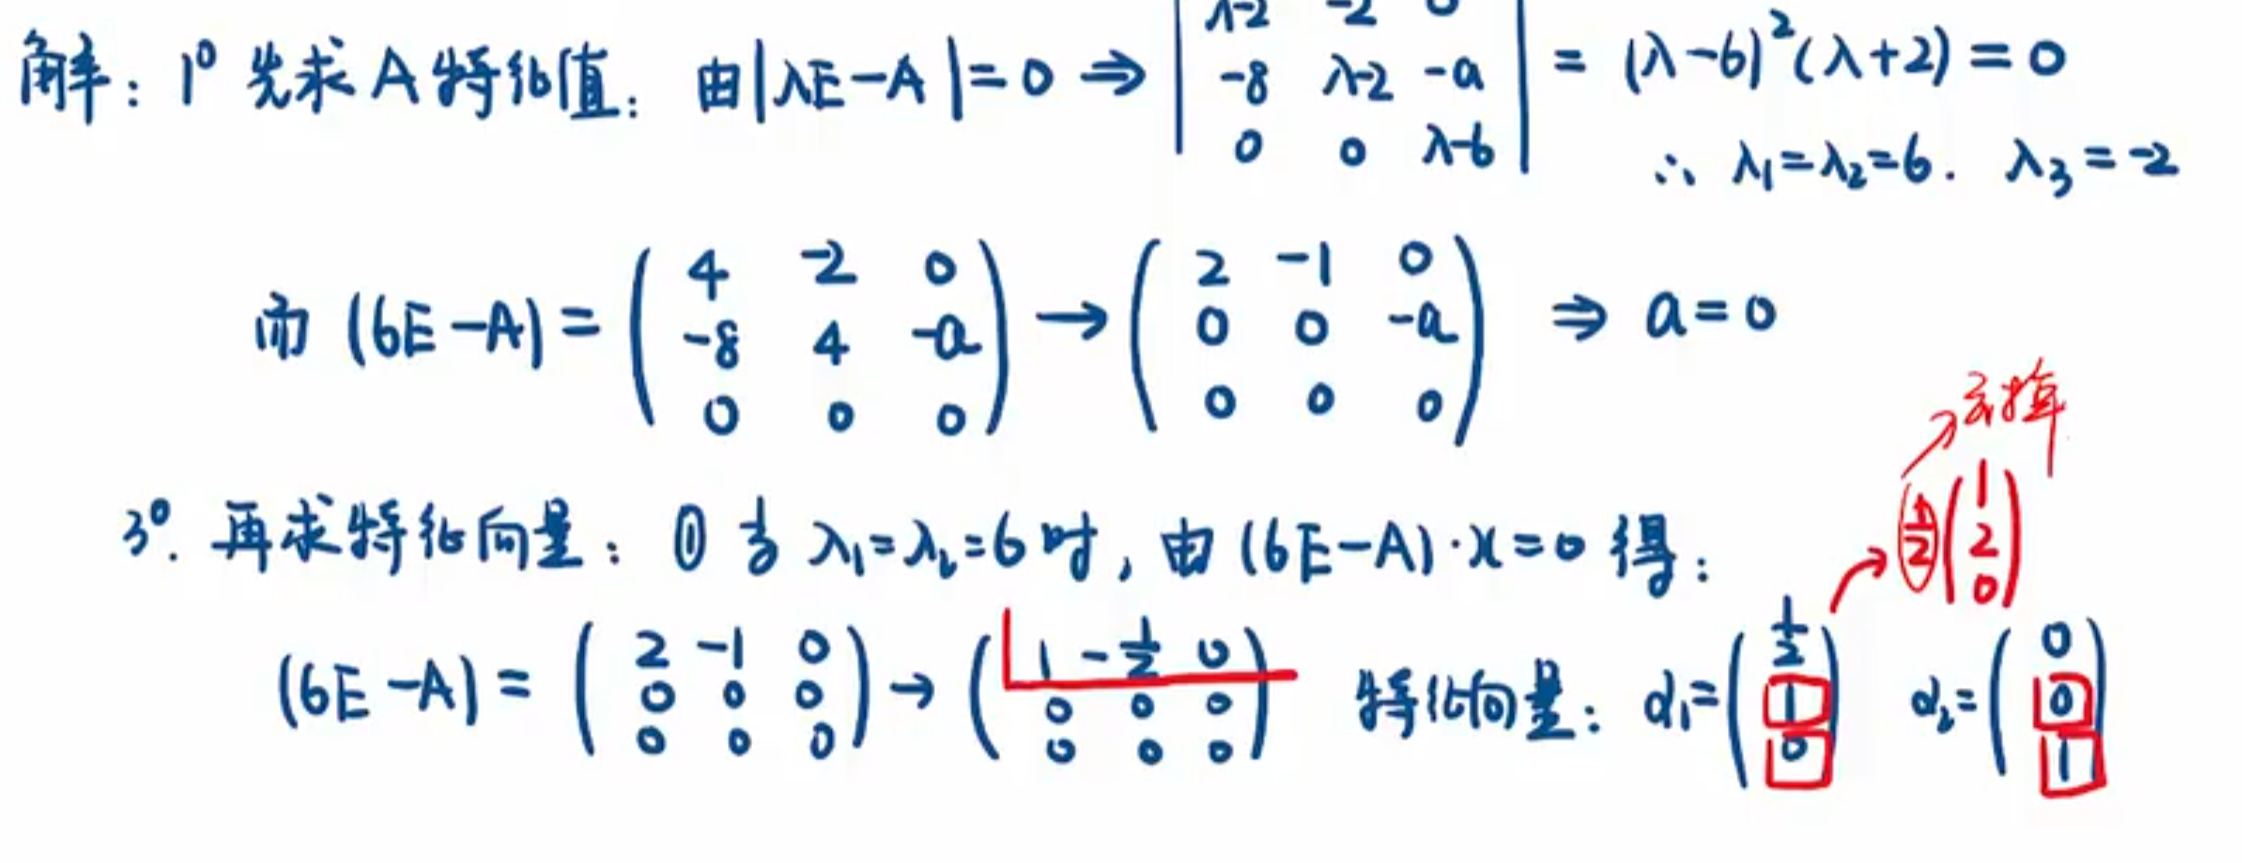 解：1° 先求A特征值：由|λE-A|=0 ⇒ | λ-2 -2 0 ; -8 λ-2 -a ; 0 0 λ-6 | = (λ-6)²(λ+2)=0
∴ λ₁=λ₂=6. λ₃=-2
而 (6E-A)= ( 4 -2 0 ; -8 4 -a ; 0 0 0 ) → ( 2 -1 0 ; 0 0 -a ; 0 0 0 ) ⇒ a=0
去掉
1/2 ( 1 ; 2 ; 0 )
3°. 再求特征向量：① 当 λ₁=λ₂=6时, 由(6E-A)·x=0 得：
(6E-A)= ( 2 -1 0 ; 0 0 0 ; 0 0 0 ) → ( 1 -1/2 0 ; 0 0 0 ; 0 0 0 ) 特征向量：α₁= ( 1/2 ; 1 ; 0 ) α₂= ( 0 ; 0 ; 1 )